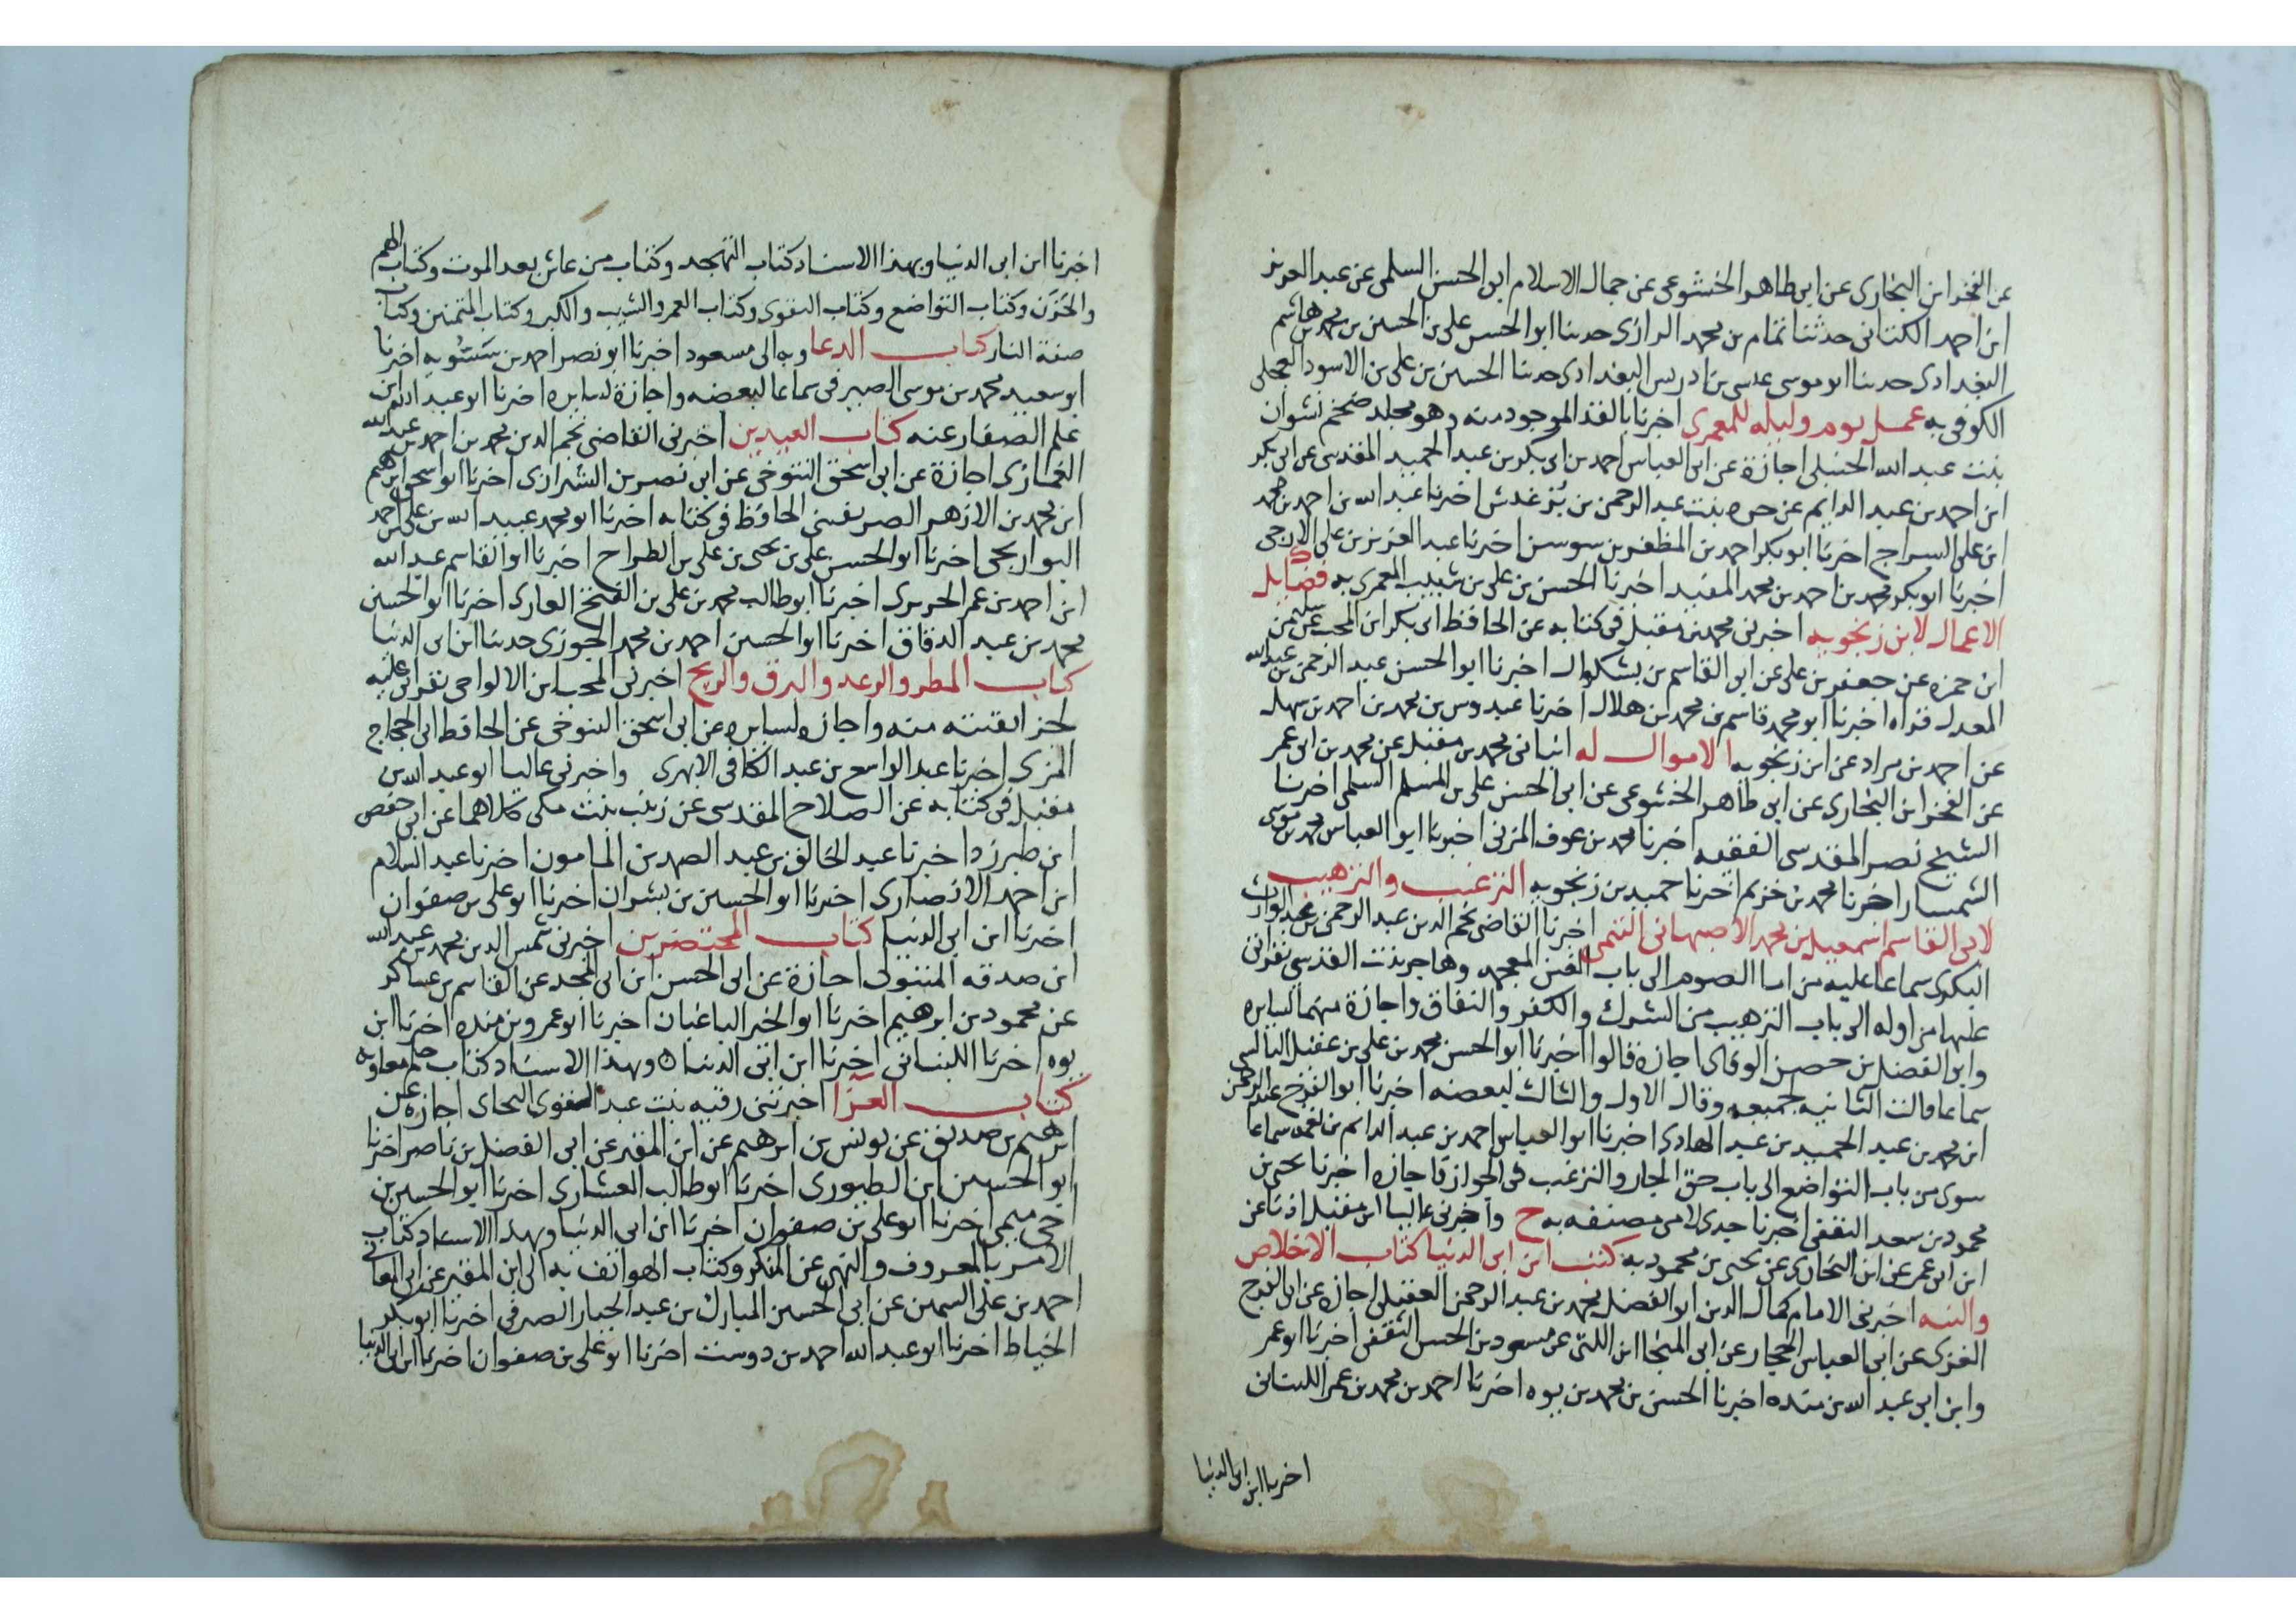 عن الفخر ابن البخارى عن ابى طاهر الخشوعى عن جمال الاسلام ابى الحسن السلمى عن عبد العزيز
ابن احمد الكتانى حدثنا تمام بن محمد الرازى حدثنا ابو الحسن على بن الحسين بن محمد بن هاشم
البغدادى حدثنا ابو موسى عيسى بن ادريس البغدادى حدثنا الحسين بن على بن الاسود العجلى
الكوفى به عمل يوم وليله للمعمرى اخبرنا بالقدر الموجود منه وهو مجلد ضخم نشوان
بنت عبد الله الحنبلى اجازة عن ابى العباس احمد بن ابى بكر بن عبد الحميد المقدسى عن ابى بكر
ابن احمد بن عبد الدايم عن حره بنت عبد الرحمن بن اخبرنا عبد الله بن احمد بن محمد
ابن على السراج اخبرنا ابو بكر احمد بن المظفر بن سوسن اخبرنا عبد العزيز بن على الازجى
اخبرنا ابو بكر محمد بن احمد بن محمد المفيد اخبرنا الحسن بن على بن شبيب المعمرى به فضايل
الاعمال لابن زنجويه اخبرنى محمد بن مقبل فى كتابه عن الحافظ ابى بكر ابن المحب عن سليمن
ابن حمزه عن جعفر بن على عن ابى القاسم بن بشكوال اخبرنا ابو الحسن عبد الرحمن بن عبد الله
المعدل قراه اخبرنا ابو محمد قاسم بن محمد بن هلال اخبرنا عبدوس بن محمد بن احمد بن سهله
عن احمد بن مراد عن ابن زنجويه الاموال له انبانى محمد بن مقبل عن محمد بن ابى عمر
عن الفخر ابن البخارى عن ابى طاهر الخشوعى عن ابى الحسن على بن المسلم السلمى اخبرنا
الشيخ نصر المقدسى الفقيه اخبرنا محمد بن عوف المزنى اخبرنا ابو العباس محمد بن موسى
السمسار اخبرنا محمد بن خزيم اخبرنا حميد بن زنجويه الترغيب والترهيب
لابى القاسم اسمعيل بن محمد الاصبهانى التيمى اخبرنا القاضى نجم الدين عبد الرحمن بن عبد الوارث
البكرى سماعا عليه من الصوم الى باب وهاجر بنت القدسى بقراتى
عليها من اوله الى باب الترهيب من الشرك والكفر والنفاق واجازة منهما لسايره
وابو الفضل بن حصين اجازة قالوا اخبرنا ابو الحسن محمد بن على بن عقيل البالسى
سماعا قالت الثانيه لجميعه وقال الاول والثالث لبعضه اخبرنا ابو الفرج عبد الرحمن
ابن محمد بن عبد الحميد بن عبد الهادى اخبرنا ابو العباس احمد بن عبد الدايم بن نعمه سماعا
سوى من باب التواضع الى باب حق الجار والترغيب فى الجوار فاجازه اخبرنا يحيى بن
محمود بن سعد الثقفى اخبرنا جدى لامى مصنفه به ح واخبرنى عاليا ابن مقبل اذنا عن
ابن ابى عمر عن ابن البخارى عن يحيى بن محمود به كتب ابن ابى الدنيا كتاب الاخلاص
والنيه اخبرنى الامام كمال الدين ابو الفضل محمد بن عبد الرحمن العقيلى اجازه عن ابى الفرج
الغزى عن ابى العباس الحجار عن ابى المنجا ابن اللتى عن مسعود بن الحسن الثقفى اخبرنا ابو عمر
وابن ابى عبد الله بن منده اخبرنا الحسن بن محمد بن يوه اخبرنا احمد بن محمد بن عمر اللبنانى
اخبرنا ابن ابى الدنيا
اخبرنا ابن ابى الدنيا وبهذا الاسناد كتاب التهجد وكتاب من عاش بعد الموت وكتاب الهم
والحزن وكتاب التواضع وكتاب التقوى وكتاب العمر والشيب والكبر وكتاب المتمنين وكتاب
صفة النار كتاب الدعا وبه الى مسعود اخبرنا ابو نصر احمد بن سسويه اخبرنا
ابو سعيد محمد بن موسى الصيرفى سماعا لبعضه واجازة لسايره اخبرنا ابو عبد الله ابن
علم الصفار عنه كتاب العيدين اخبرنى القاضى نجم الدين محمد بن احمد بن عبد الله
اجازة عن ابى اسحق التنوخى عن ابى نصر بن الشيرازى اخبرنا ابو اسحق ابرهيم
ابن محمد بن الازهر الصريفينى الحافظ فى كتابه اخبرنا ابو محمد عبيد الله بن على بن احمد
اخبرنا ابو الحسن على بن يحيى بن على بن الطراح اخبرنا ابو القاسم عبد الله
ابن احمد بن عمر الحريرى اخبرنا ابو طالب محمد بن على بن الفتح العارى اخبرنا ابو الحسين
محمد بن عبد الله الدقاق اخبرنا ابو الحسين احمد بن محمد الجوزى حدثنا ابن ابى الدنيا
كتاب المطر والرعد والبرق والريح اخبرنى المحب ابن الالواحى بقراتى عليه
لجز انقيته منه واجازه لسايره عن ابى اسحق التنوخى عن الحافظ ابى الحجاج
المزى اخبرنا عبد الواسع بن عبد الكافى الابهرى واخبرنى عاليا ابو عبد الله بن
مقبل فى كتابه عن الصلاح المقدسى عن زينب بنت مكى كلاهما عن ابى حفص
ابن طبرزد اخبرنا عبد الخالق بن عبد الصمد بن المامون اخبرنا عبد السلام
ابن احمد الانصارى اخبرنا ابو الحسين بن بشران اخبرنا ابو على بن صفوان
اخبرنا ابن ابى الدنيا كتاب المحتضرين اخبرنى شمس الدين محمد بن عبد الله
ابن صدقه المتبولى اجازة عن ابى الحسن ابن ابى المجد عن القاسم بن عساكر
عن محمود بن ابرهيم اخبرنا ابو الخير الباغبان اخبرنا ابو عمرو بن منده اخبرنا ابن
يوه اخبرنا اللبنانى اخبرنا ابن ابى الدنيا وبهذا الاسناد كتاب حلم معاويه
كتاب العزا اخبرتنى رقيه بنت عبد القوى البجاى اجازه عن
ابرهيم بن صديق عن يونس بن ابرهيم عن ابن المقير عن ابى الفضل بن ناصر اخبرنا
ابو الحسين ابن الطيورى اخبرنا ابو طالب العشارى اخبرنا ابو الحسين بن
اخى ميمى اخبرنا ابو على بن صفوان اخبرنا ابن ابى الدنيا وبهذا الاسناد كتاب
الامر بالمعروف والنهى عن المنكر وكتاب الهواتف به الى ابن المقير عن ابى المعالى
احمد بن على السمين عن ابى الحسين المبارك بن عبد الجبار الصيرفى اخبرنا ابو بكر
الخياط اخبرنا ابو عبد الله احمد بن دوست اخبرنا ابو على بن صفوان اخبرنا ابن ابى الدنيا